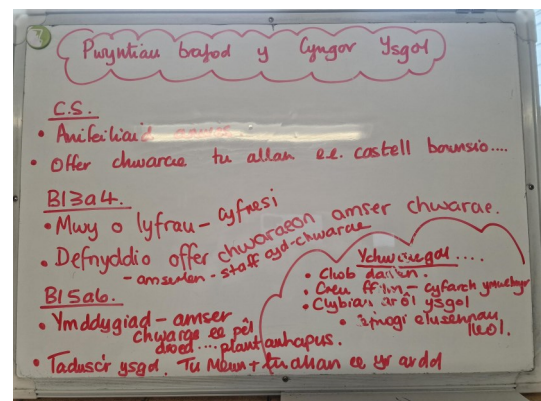 Pwyntiau trafod y Cyngor Ysgol
C.S.
• Anifeiliaid
• Offer chwarae tu allan e.e. castell bownsio....
Bl3a4.
• Mwy o lyfrau - cyfresi
• Defnyddio offer chwaraeon amser chwarae.
- amserlen - staff cyd-chwarae
Bl5a6.
• Ymddygiad - amser
chwarae ee pêl
droed ... plant anhapus.
• Tacluso'r ysgol. Tu Mewn + tu allan ee yr ardd
Ychwanegol ....
• Clwb
• Creu ffilm - cyfarch ymwelwyr
• Clybiau ar ôl ysgol
• elusennau
lleol.